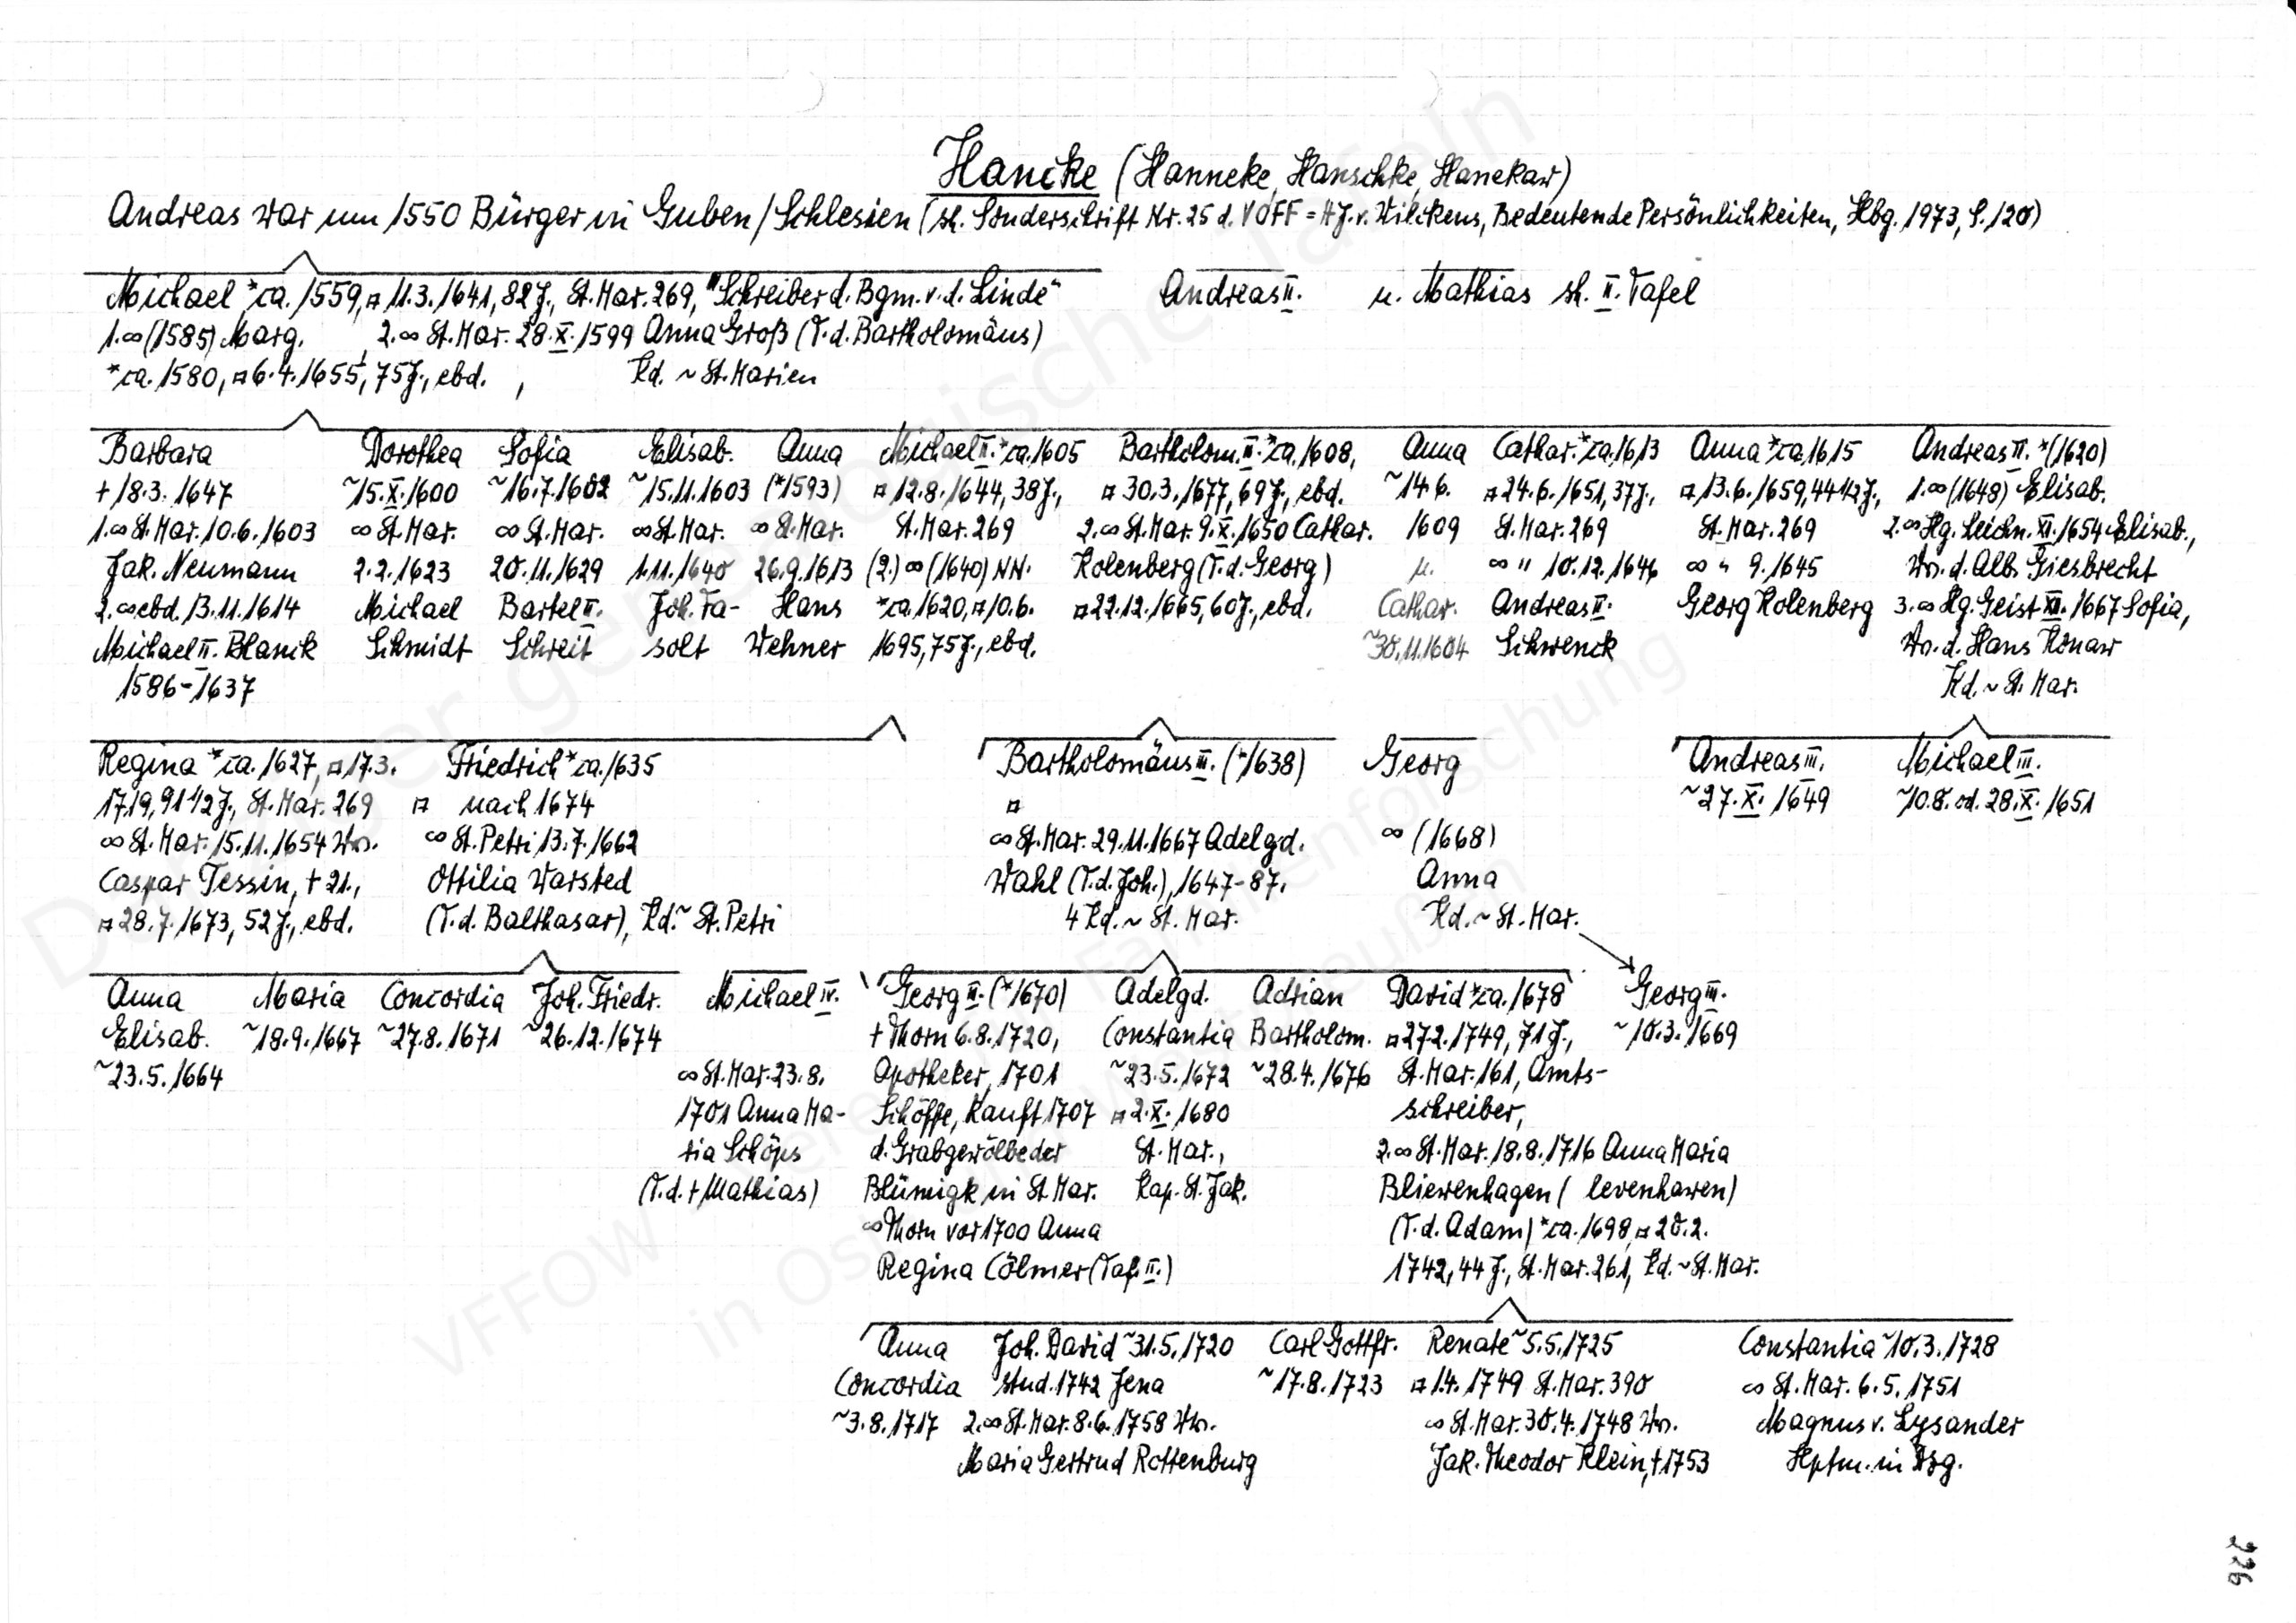 Hancke (Hanneke, Hanschke, Hanekaw)
Andreas war um 1550 Bürger in Guben/Schlesien (sh. Sonderschrift Nr. 25 d. VOFF = H.J. v. Wilckens, Bedeutende Persönlichkeiten, Hbg. 1973, S. 120)
Michael *ca. 1559, ⚰ 11.3.1641, 82J., St. Mar. 269, "Schreiber d. Bgm. v. d. Linde"
1.∞(1585) Marg. 2.∞ St. Mar. 28.X.1599 Anna Groß (T. d. Bartholomäus)
*ca. 1580, ⚰ 6.4.1655, 75J., ebd., Kd. ~ St. Marien
Andreas II. u. Mathias sh. II. Tafel
Barbara
+ 18.3.1647
1.∞ St. Mar. 10.6.1603
Jak. Neumann
2.∞ ebd. 13.11.1614
Michael II. Blanck
1586-1637
Dorothea
~15.X.1600
∞ St. Mar.
2.2.1623
Michael
Schmidt
Sofia
~16.7.1602
∞ St. Mar.
20.11.1629
Bartel II.
Schreit
Elisab.
~15.11.1603
∞ St. Mar.
1.11.1640
Joh. Fa-
solt
Anna
(*1593)
∞ St. Mar.
26.9.1613
Hans
Wehner
Michael II. *ca. 1605
⚰ 12.8.1644, 38J.,
St. Mar. 269
(2.) ∞ (1640) NN.
*ca. 1620, ⚰ 10.6.
1695, 75J., ebd.
Bartholom. II. *ca. 1608,
⚰ 30.3.1677, 69J., ebd.
2.∞ St. Mar. 9.X.1650 Cathar.
Rolenberg (T. d. Georg)
⚰ 22.12.1665, 60J., ebd.
Anna
~14.6.
1609
u.
Cathar.
~30.11.1604
Cathar. *ca. 1613
⚰ 24.6.1651, 37J.,
St. Mar. 269
∞ " 10.12.1646
Andreas II.
Schwenck
Anna *ca. 1615
⚰ 13.6.1659, 44 1/2 J.,
St. Mar. 269
∞ " 9.1645
Georg Rolenberg
Andreas II. *(1620)
1.∞ (1648) Elisab.
2.∞ Hg. Leichn. XI. 1654 Elisab.,
Ww. d. Alb. Giesbrecht
3.∞ Hg. Geist XII. 1667 Sofia,
Ww. d. Hans Ronaw
Kd. ~ St. Mar.
Regina *ca. 1627, ⚰ 17.3.
1719, 91 1/2 J., St. Mar. 269
∞ St. Mar. 15.11.1654 Ww.
Caspar Tessin, + 21.,
⚰ 28.7.1673, 52J., ebd.
Friedrich *ca. 1635
⚰ nach 1674
∞ St. Petri 13.7.1662
Ottilia Warsted
(T. d. Balthasar), Kd. ~ St. Petri
Bartholomäus III. (*1638)
⚰
∞ St. Mar. 29.11.1667 Adelgd.
Wahl (T. d. Joh.), 1647-87,
4 Kd. ~ St. Mar.
Georg
∞ (1668)
Anna
Kd. ~ St. Mar.
Andreas III.
~27.X.1649
Michael III.
~10.8. od. 28.X.1651
Anna
Elisab.
~23.5.1664
Maria
~18.9.1667
Concordia
~27.8.1671
Joh. Friedr.
~26.12.1674
Michael IV.
∞ St. Mar. 23.8.
1701 Anna Ma-
ria Schöps
(T. d. + Mathias)
Georg II. (*1670)
+ Thorn 6.8.1720,
Apotheker, 1701
Schöffe, kauft 1707
d. Grabgewölbe der
Blümigk in St. Mar.
∞ Thorn vor 1700 Anna
Regina Cölmer (Taf. II.)
Adelgd.
Constantia
~23.5.1672
⚰ 2.X.1680
St. Mar.,
Kap. St. Jak.
Adrian
Bartholom.
~28.4.1676
David *ca. 1678
⚰ 27.2.1749, 71J.,
St. Mar. 161, Amts-
schreiber,
2.∞ St. Mar. 18.8.1716 Anna Maria
Bliewenhagen ( levenhawen)
(T. d. Adam) *ca. 1698, ⚰ 20.2.
1742, 44J., St. Mar. 261, Kd. ~ St. Mar.
Georg III.
~10.3.1669
Anna
Concordia
~3.8.1717
Joh. David ~31.5.1720
stud. 1742 Jena
2.∞ St. Mar. 8.6.1758 Ww.
Maria Gertrud Rottenburg
Carl Gottfr.
~17.8.1723
Renate ~5.5.1725
⚰ 1.4.1749 St. Mar. 390
∞ St. Mar. 30.4.1748 Ww.
Jak. Theodor Klein, +1753
Constantia ~10.3.1728
∞ St. Mar. 6.5.1751
Magnus v. Lysander
Hptm. in Dzg.
226